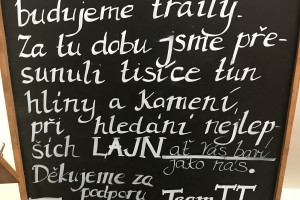 budujeme traily.
Za tu dobu jsme pře-
sunuli tisíce tun
hlíny a kamení,
při hledání nejlep-
ších LAJN ať vás baví
jako nás.
Děkujeme za
podporu
Team TT